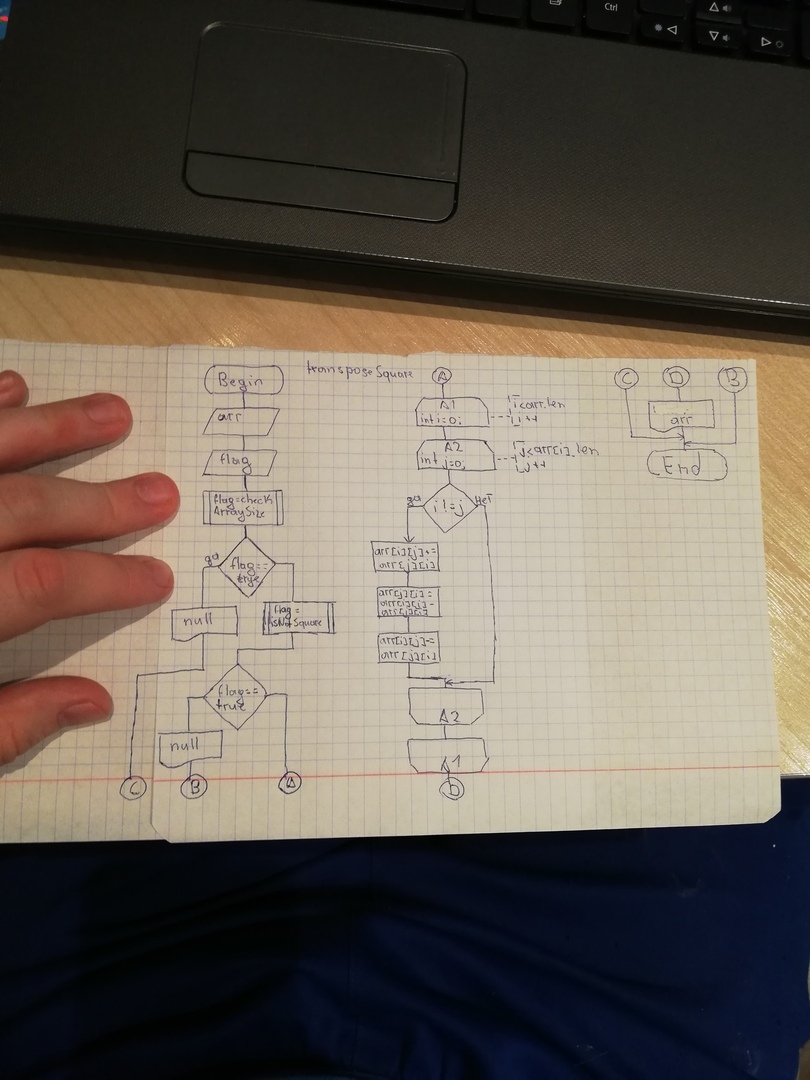 Ctrl
transposeSquare
Begin
arr
flag
flag=check
ArraySize
да
flag==
true
null
flag=
isNotSquare
flag==
true
null
C
B
A
A
A1
int i=0;
i<arr.len
i++
A2
int j=0;
j<arr[i].len
j++
да
i!=j
нет
arr[i][j]+=
arr[j][i]
arr[j][i]=
arr[i][j]-
arr[j][i]
arr[i][j]-=
arr[j][i]
A2
A1
D
C
D
B
arr
End